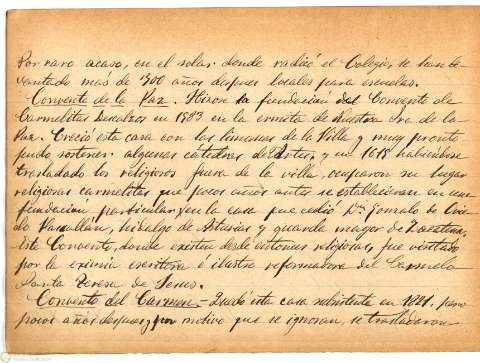 Por raro acaso, en el solar donde radicó el Colegio, se han le
vantado más de 300 años despues locales para escuelas.
Convento de la Paz. Hizose la fundacion del Convento de
Carmelitas Descalzos en 1583 en la ermita de Nuestra Sra de la
Paz. Creció esta casa con las limosnas de la Villa y muy pronto
pudo sostener algunas cátedras de Artes, y en 1618 habiéndose
trasladado los religiosos fuera de la villa, ocuparon su lugar
religiosas carmelitas que pocos años antes se establecieron en una
fundación particular, en la casa que cedió Dn Gonzalo de Ovie
do hidalgo de Asturias y guarda mayor de
Este Convento, donde existen desde entonces religiosas, fue visitado
por la eximia escritora é ilustre reformadora del Carmelo
Santa Teresa de Jesus.
Convento del Carmen = Quedó esta casa subsistente en 1821. pero
pocos años despues, por motivos que se ignoran, se trasladaron